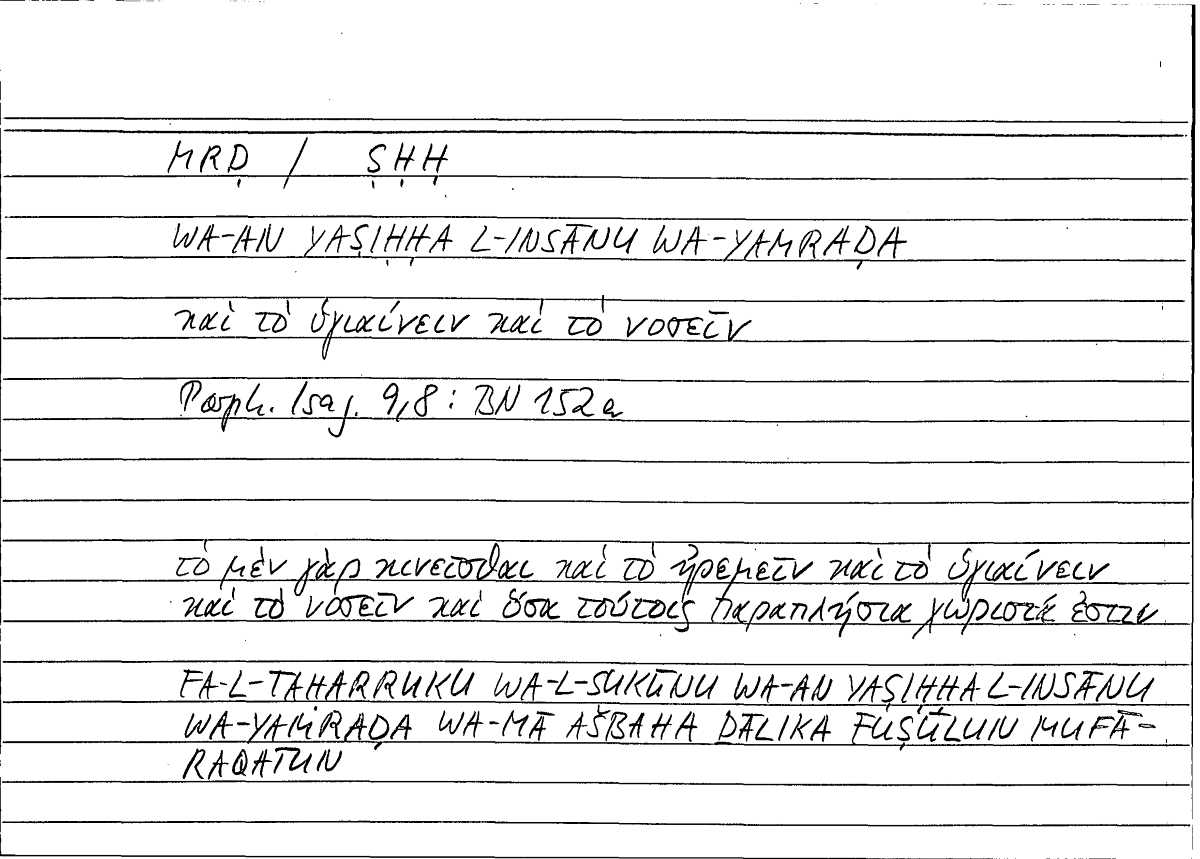 MRḌ / ṢḤḤ
WA-AN YAṢIḤḤA L-INSĀNU WA-YAMRAḌA
καὶ τὸ ὑγιαίνειν καὶ τὸ νοσεῖν
Porph. Isag. 9,8 : BN 152a
τὸ μὲν γὰρ κινεῖσθαι καὶ τὸ ἠρεμεῖν καὶ τὸ ὑγιαίνειν
καὶ τὸ νοσεῖν καὶ ὅσα τούτοις παραπλήσια χωριστά ἐστιν
FA-L-TAHARRUKU WA-L-SUKŪNU WA-AN YAṢIḤḤA L-INSĀNU
WA-YAMRAḌA WA-MĀ AŠBAHA ḎĀLIKA FUṢŪLUN MUFĀ-
RAQATUN